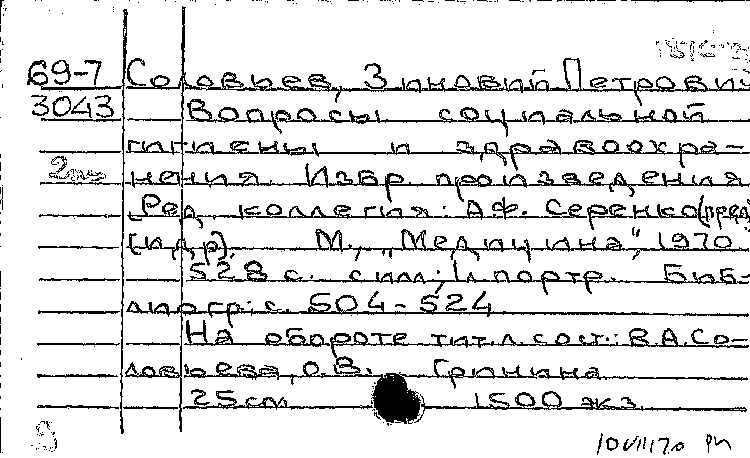 69-7 Соловьев, Зиновий Петрович
3043 Вопросы социальной
гигиены и здравоохра-
нения. Избр. произведения
[Ред. коллегия: А.Ф. Серенко (пред.)
[и др.]. М., "Медицина", 1970
528 с. с илл.; 1 л. портр. Биб-
лиогр.: с. 504-524
На обороте тит. л. сост.: В.А. Со-
ловьева, О.В. Гринина
25 см 1500 экз.